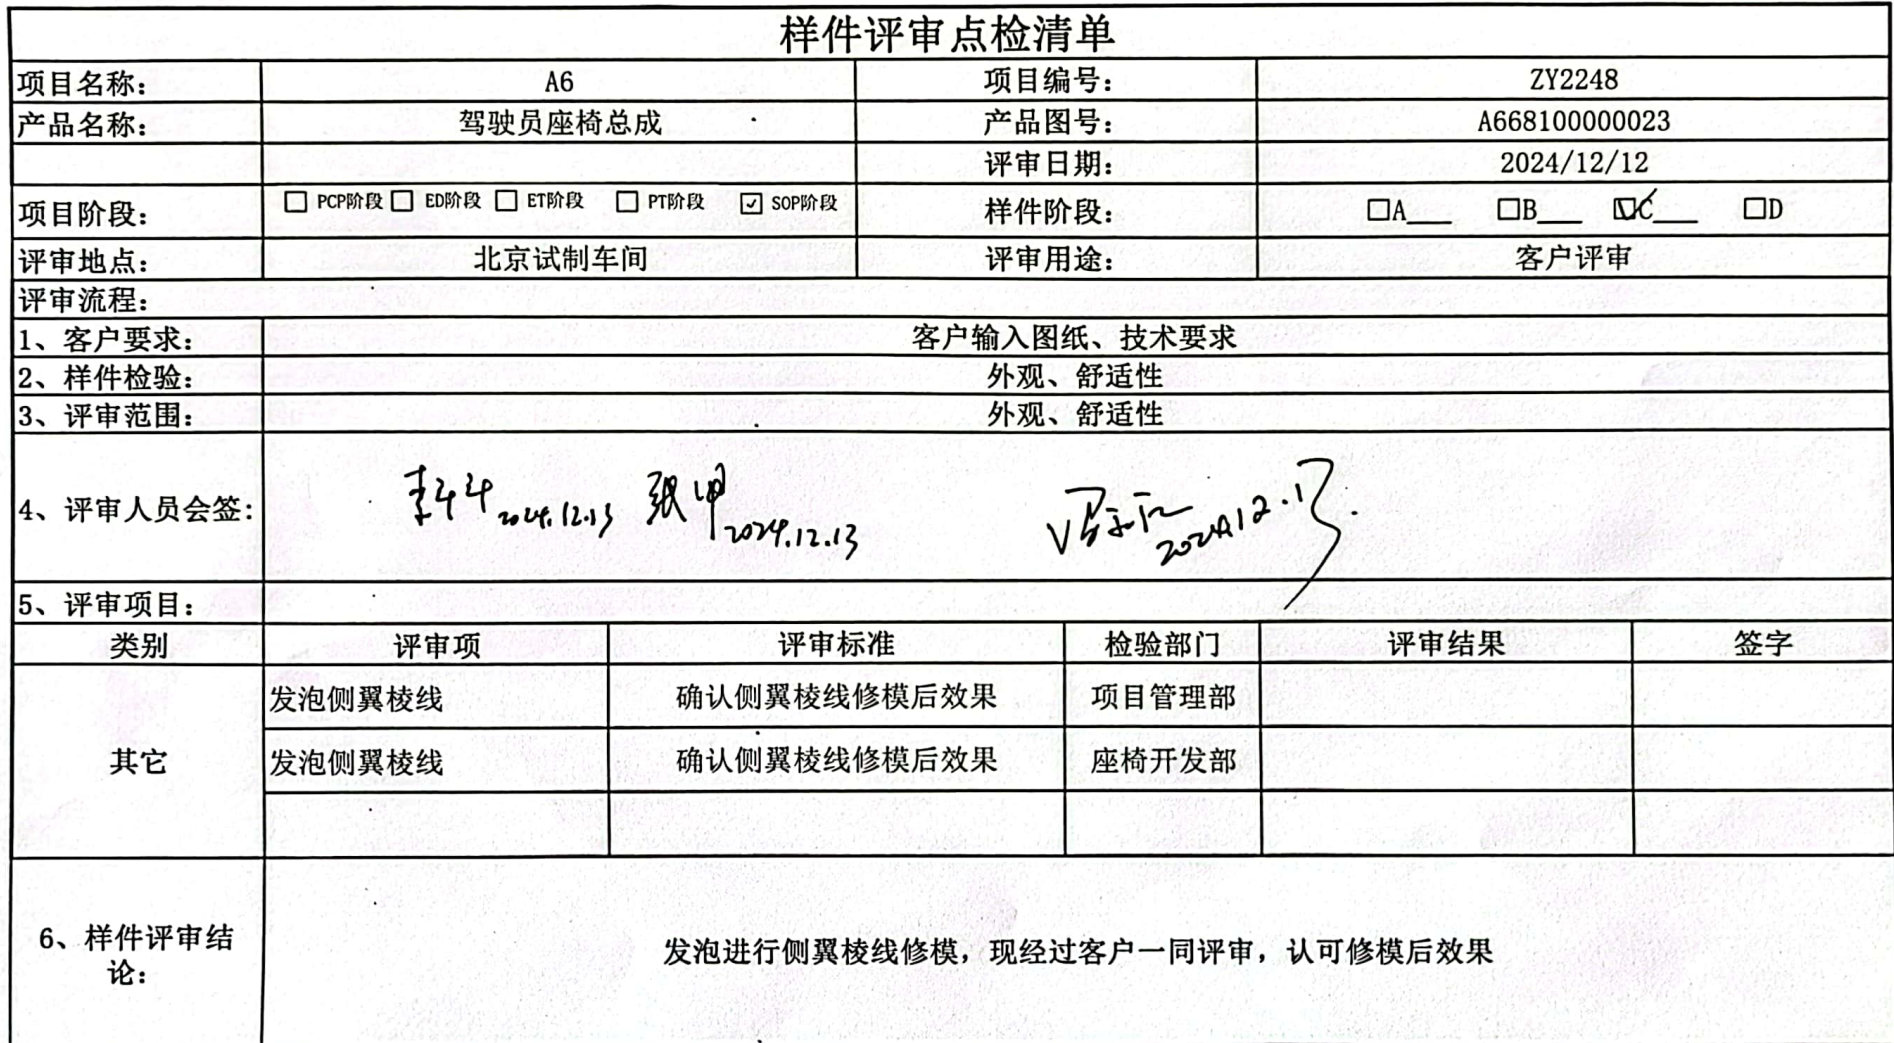 样件评审点检清单
项目名称： A6 项目编号： ZY2248
产品名称： 驾驶员座椅总成 产品图号： A668100000023
评审日期： 2024/12/12
项目阶段： □ PCP阶段 □ ED阶段 □ ET阶段 □ PT阶段 ☑ SOP阶段 样件阶段： □A___ □B___ ☑C___ □D
评审地点： 北京试制车间 评审用途： 客户评审
评审流程：
1、客户要求： 客户输入图纸、技术要求
2、样件检验： 外观、舒适性
3、评审范围： 外观、舒适性
4、评审人员会签： 2024.12.13 张 2024.12.13 2024.12.13
5、评审项目：
类别 评审项 评审标准 检验部门 评审结果 签字
其它
发泡侧翼棱线 确认侧翼棱线修模后效果 项目管理部
发泡侧翼棱线 确认侧翼棱线修模后效果 座椅开发部
6、样件评审结
论：
发泡进行侧翼棱线修模，现经过客户一同评审，认可修模后效果